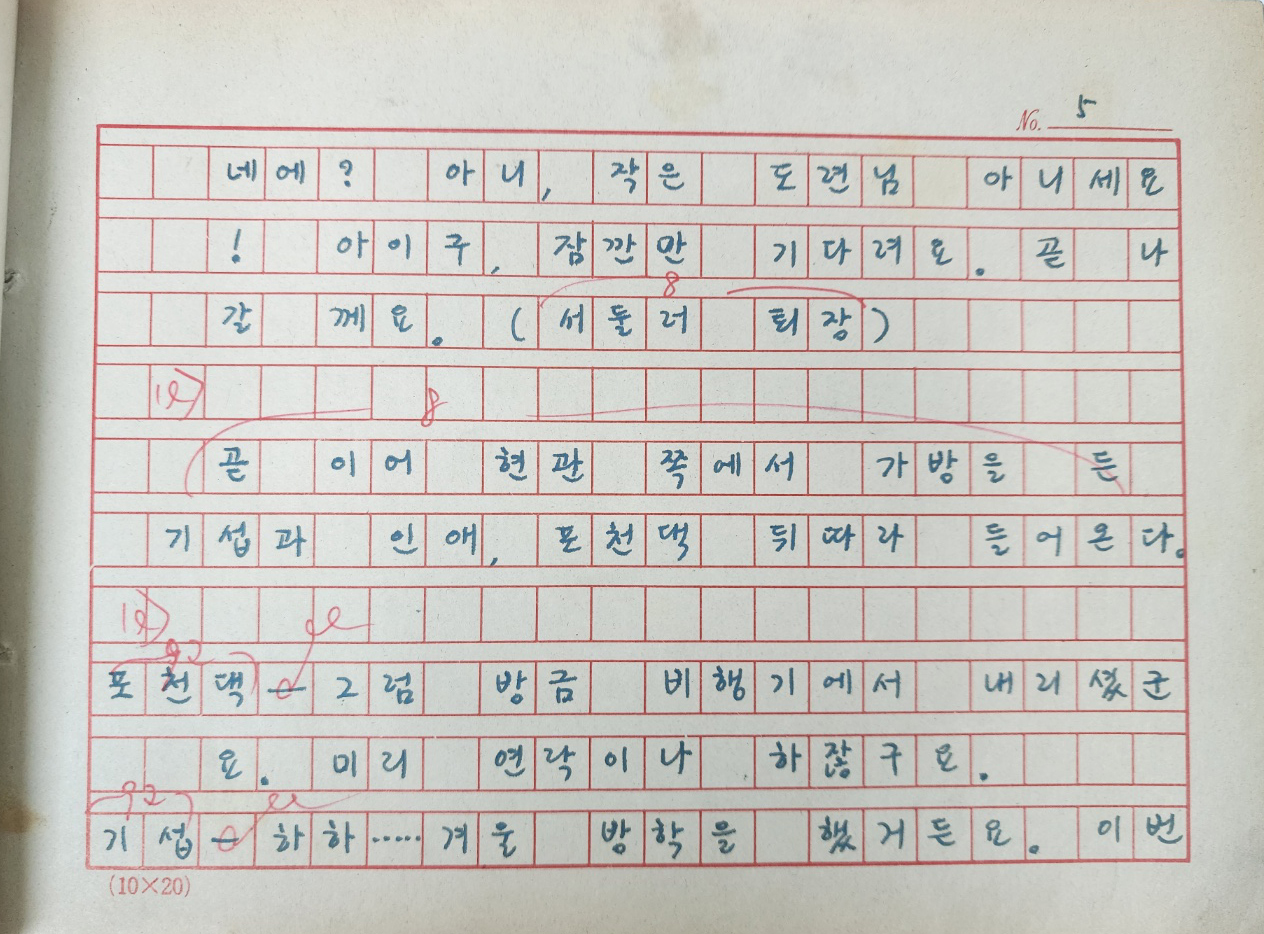 No. 5
네에? 아니, 작은 도련님 아니세요
! 아이구, 잠깐만 기다려요. 곧 나
갈 께요. (서둘러 퇴장)
8
8
곧 이어 현관 쪽에서 가방을 든
기섭과 인애, 포천댁 뒤따라 들어온다.
포천댁 — 그럼 방금 비행기에서 내리셨군
요. 미리 연락이나 하잖구요.
기섭 — 하하…… 겨울 방학을 했거든요. 이번
(10×20)